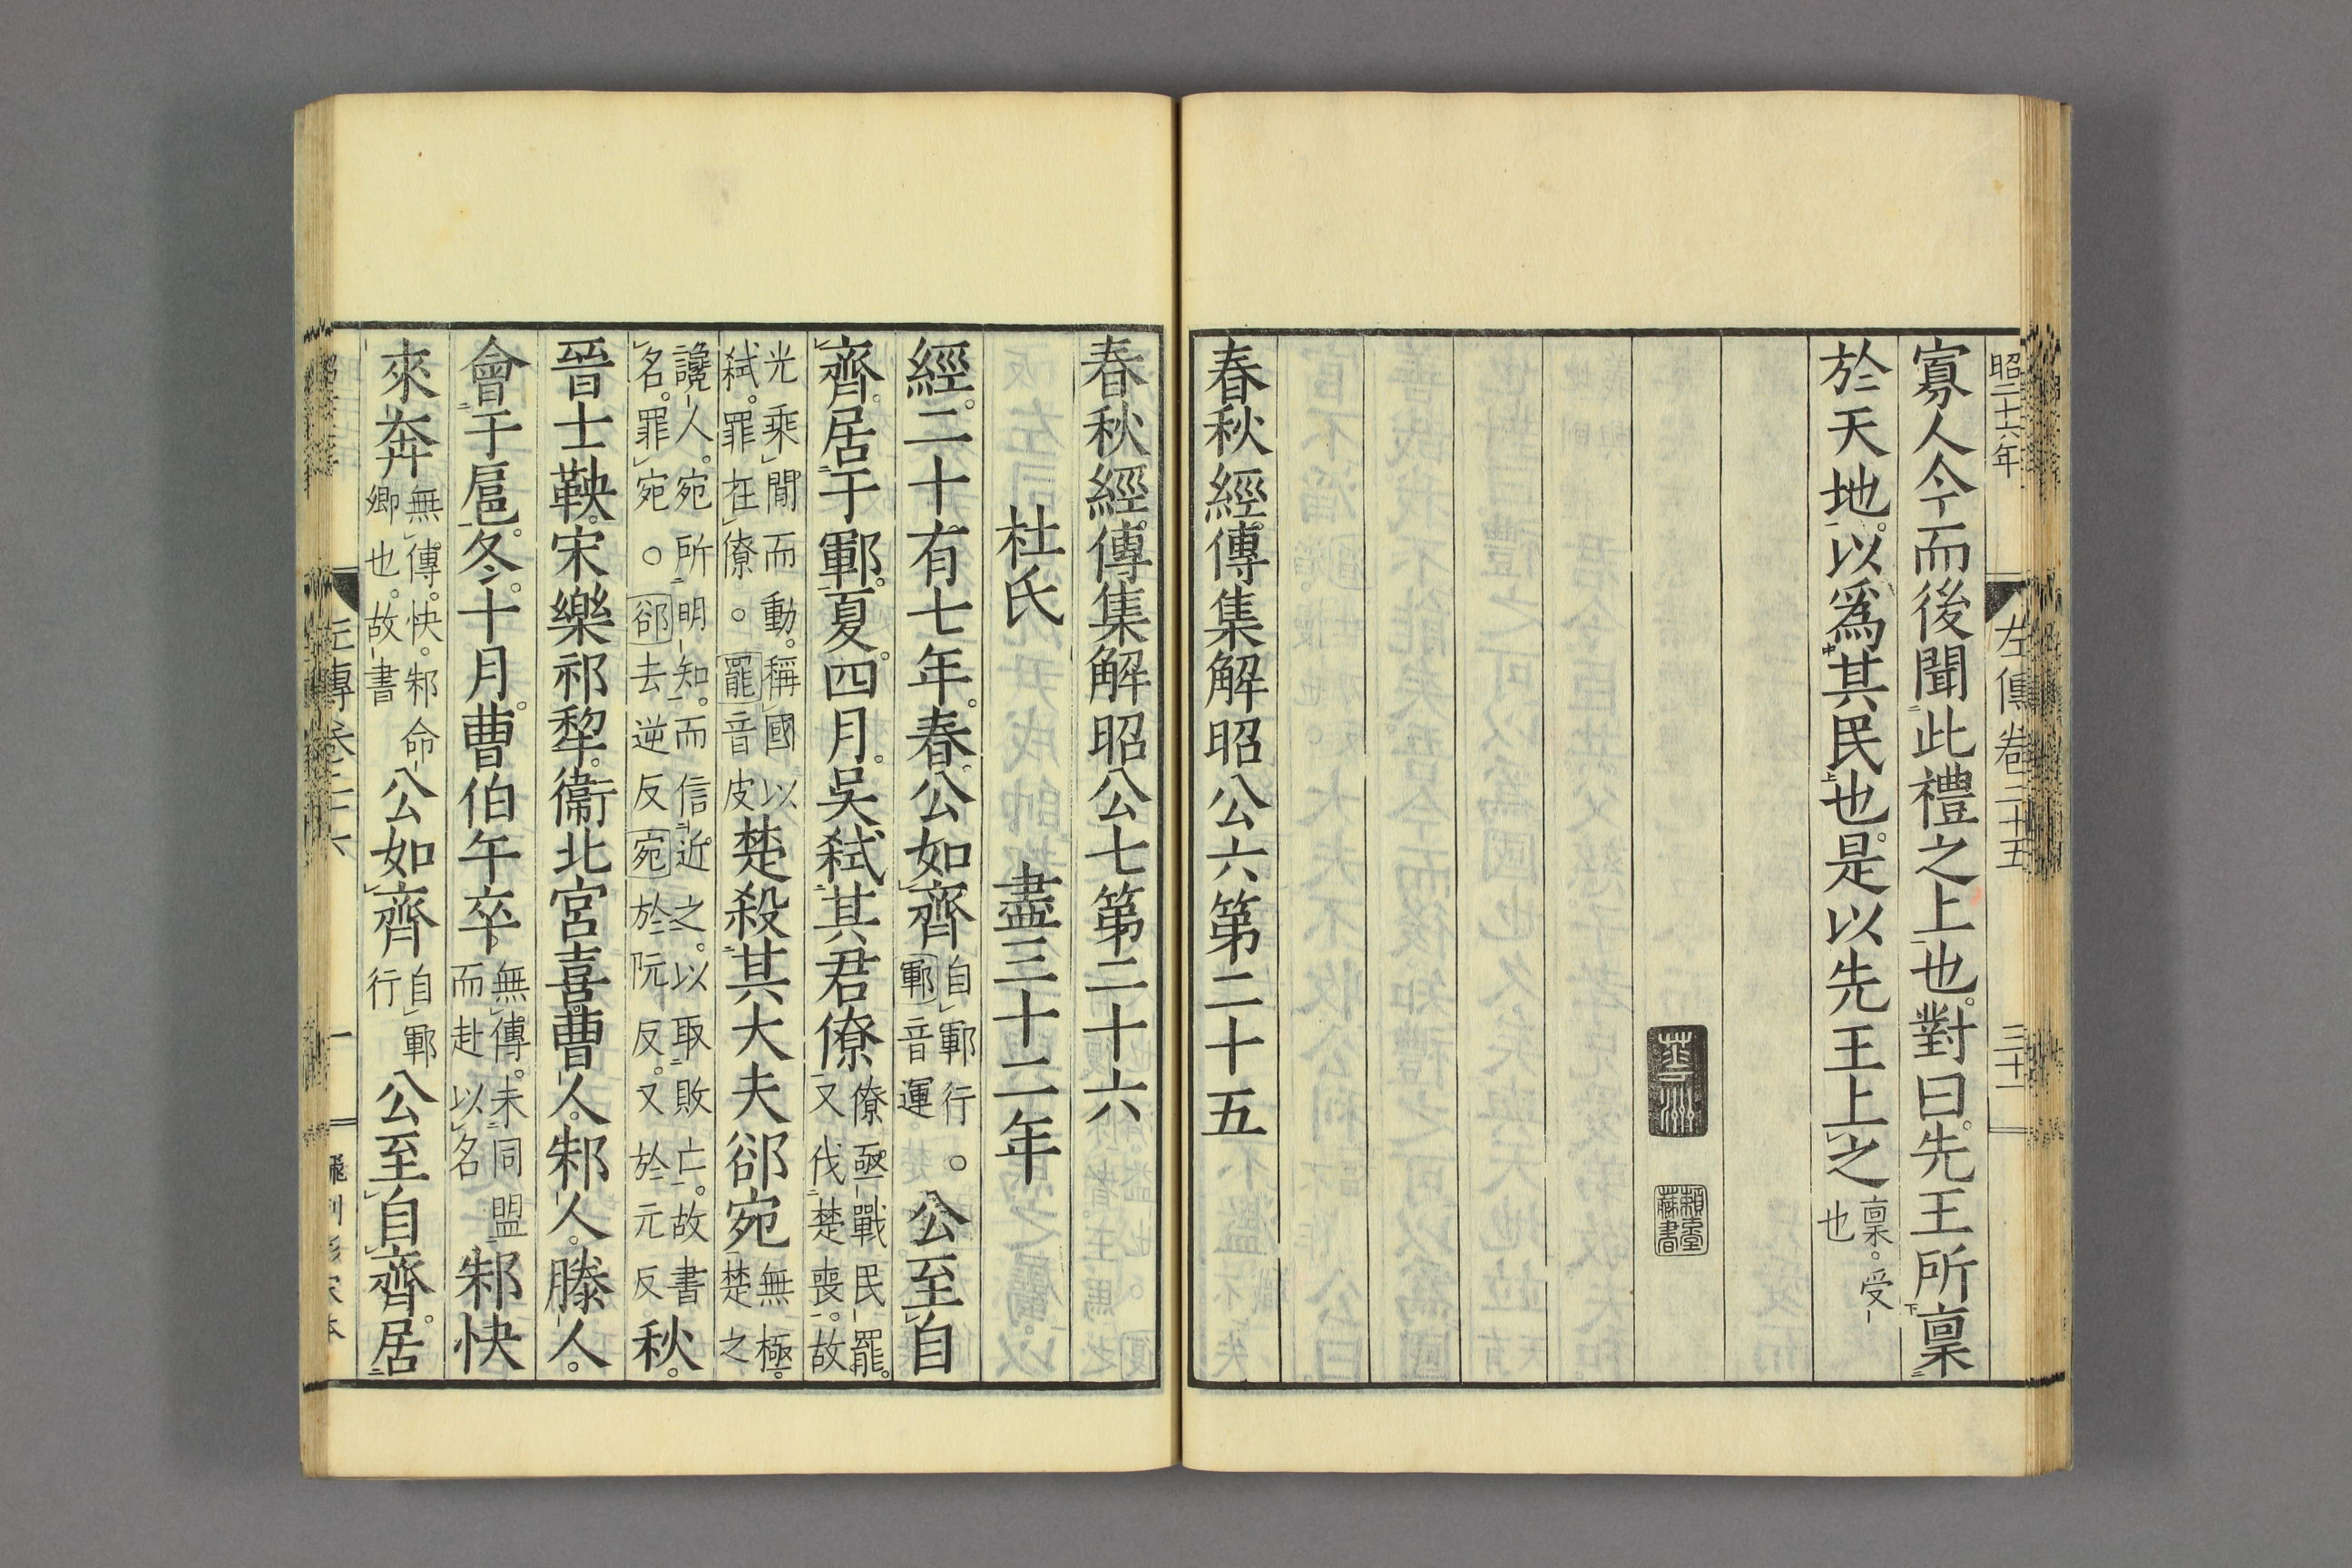 昭二十六年 左傳卷二十五 三十一
寡人今而後聞此禮之上也。對曰。先王所禀
於天地。以爲其民也。是以先王上之禀。受也
藏書
春秋經傳集解昭公六第二十五
春秋經傳集解昭公七第二十六
杜氏 盡三十二年
經。二十有七年。春。公如齊自鄆行鄆音運。○公至自
齊。居于鄆。夏。四月。吳弑其君僚僚亟戰民罷。又伐楚喪。故
光乘閒而動。稱國以弑。罪在僚。○罷音皮楚殺其大夫郤宛無極。楚之
讒人。宛所明知。而信近之。以取敗亡。故書名。罪宛○郤去逆反宛於阮反。又於元反。秋。
晉士鞅。宋樂祁犂。衞北宮喜。曹人。邾人。滕人。
會于扈。冬。十月。曹伯午卒。無傳。未同盟而赴以名邾快
來奔無傳。快。邾命卿也。故書公如齊自鄆行公至自齊。居
左傳卷二十六 一